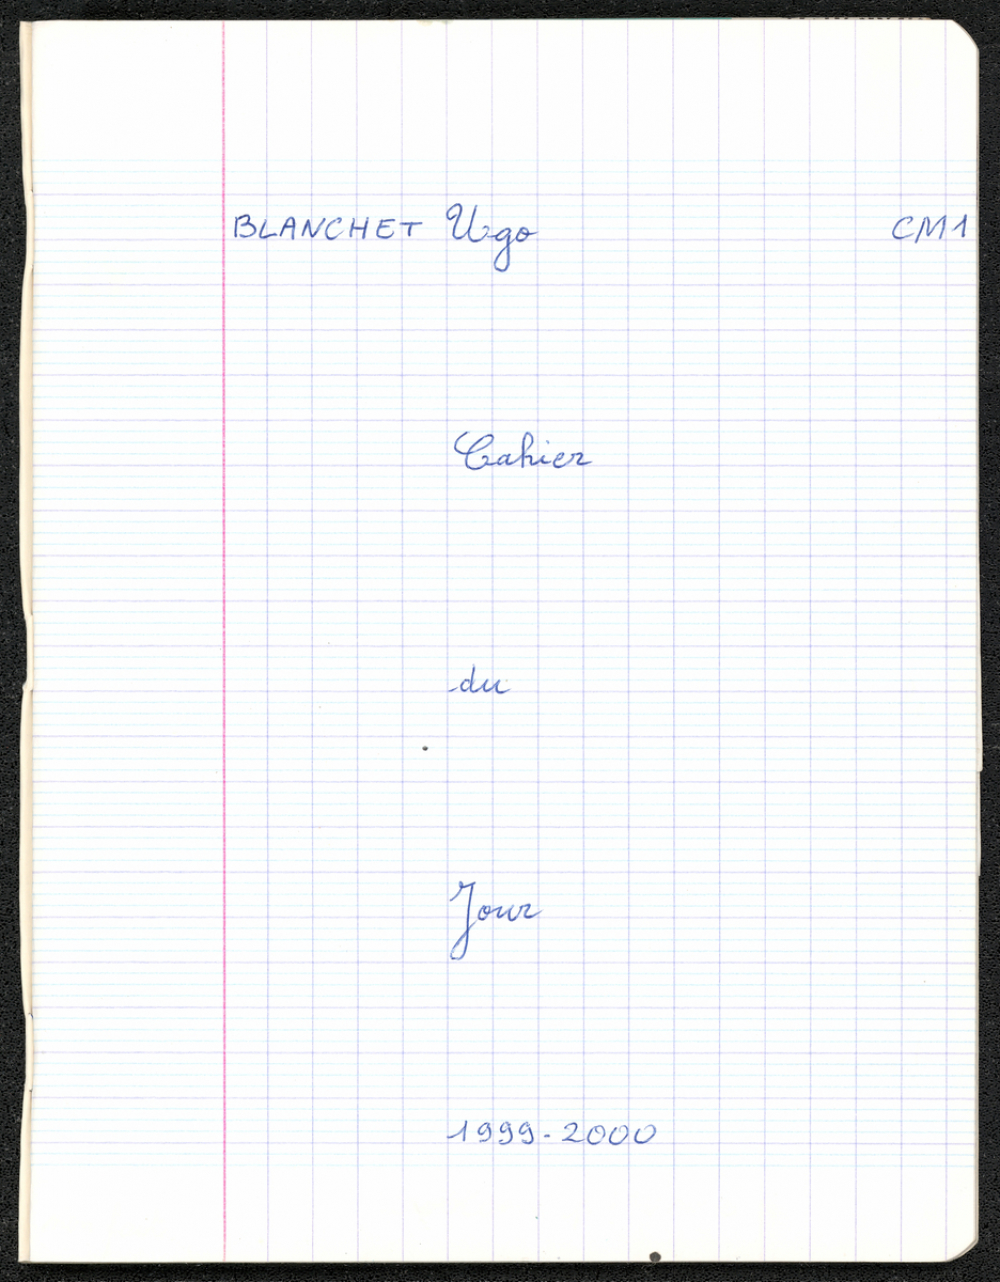 BLANCHET Ugo CM1
Cahier
du
Jour
1999-2000